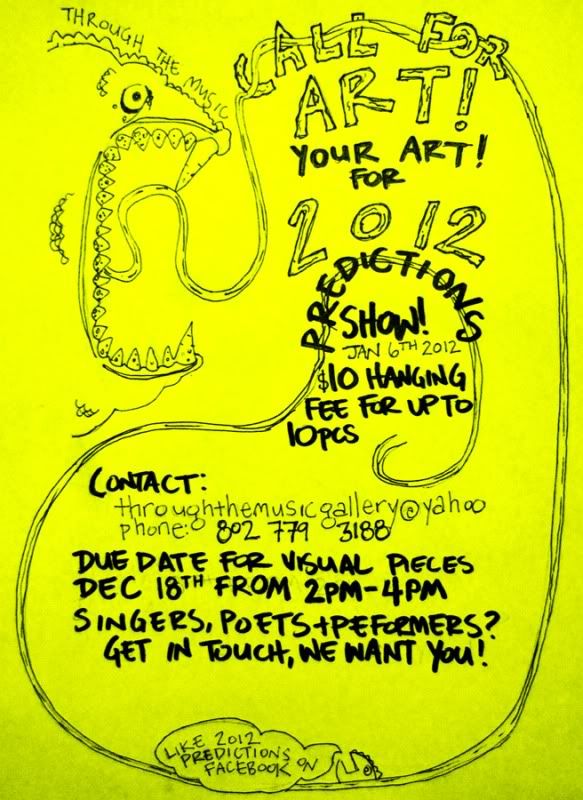 THROUGH THE MUSIC
CALL FOR
ART!
YOUR ART!
FOR
2012
PREDICTIONS
SHOW!
JAN 6TH 2012
$10 HANGING
FEE FOR UP TO
10PCS
CONTACT:
throughthemusicgallery@yahoo
phone: 802 779 3188
DUE DATE FOR VISUAL PIECES
DEC 18TH FROM 2PM-4PM
SINGERS, POETS+PEFORMERS?
GET IN TOUCH, WE WANT YOU!
LIKE 2012
PREDICTIONS
FACEBOOK ON